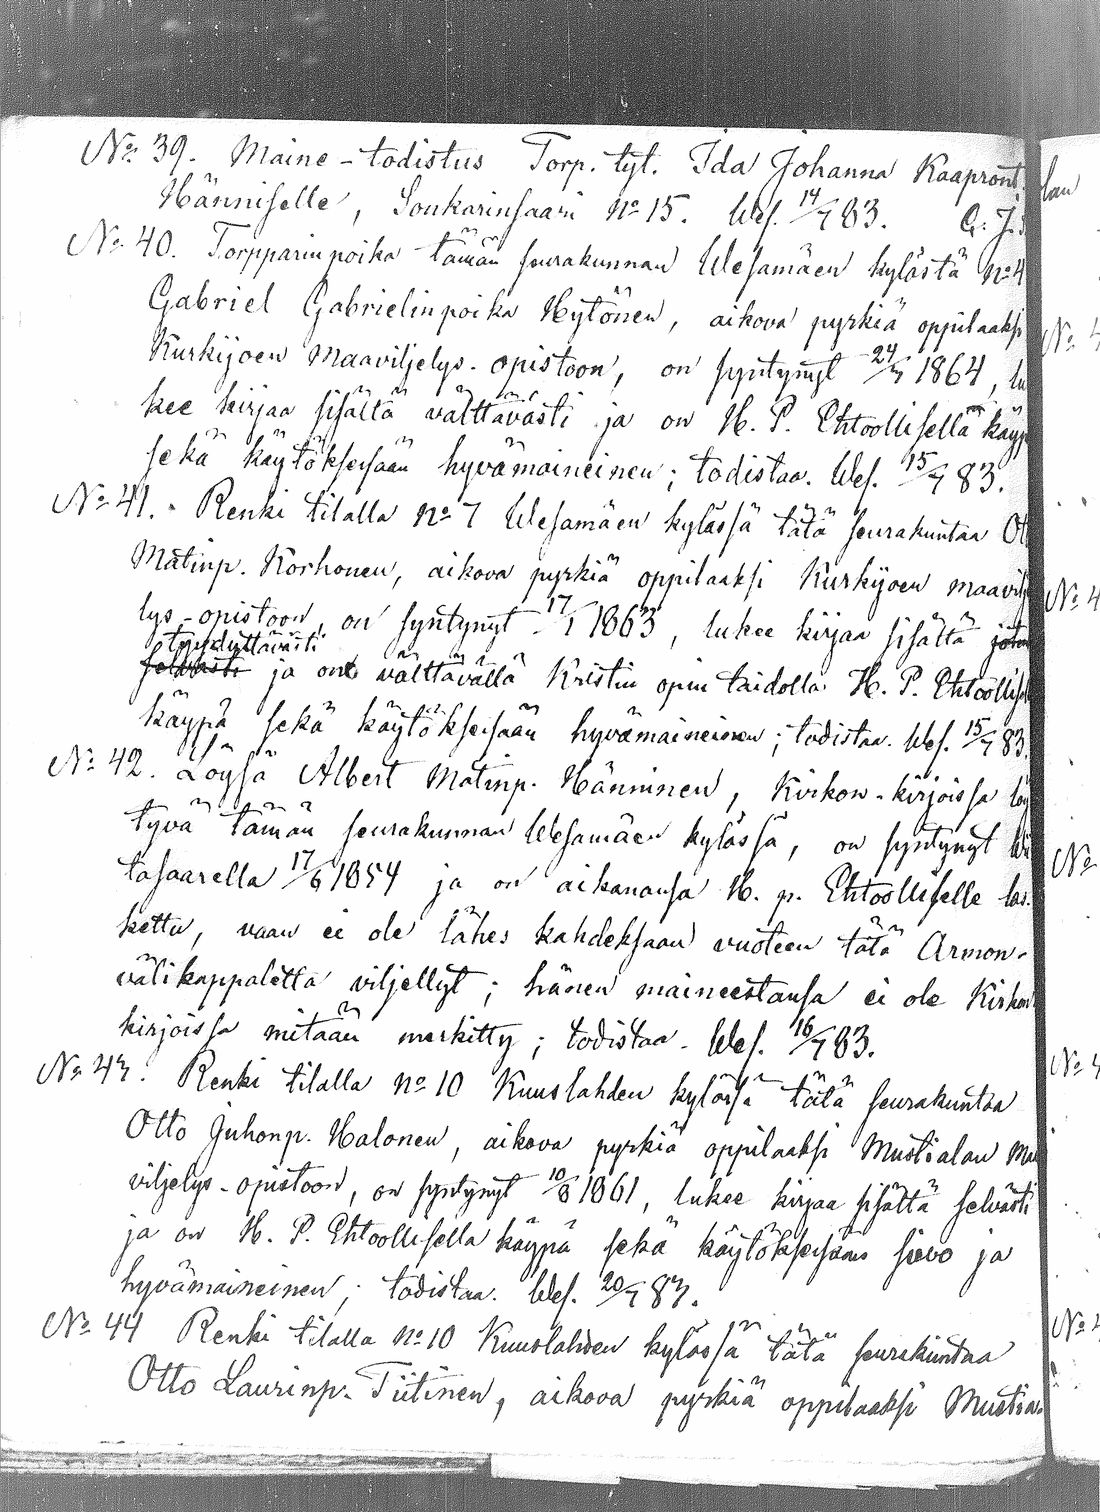 No 39. Maine-todistus Torp. tyt. Ida Johanna Kaapront.
Hänniselle, Sonkarinsaari No 15. Wes. 14/7 83. G. J.
No 40. Torpparinpoika tämän seurakunnan Wesamäen kylästä No 4
Gabriel Gabrielinpoika Hytönen, aikova pyrkiä oppilaaksi
Kurkijoen Maaviljelys-opistoon, on syntynyt 24/7 1864, lu
kee kirjaa sisältä välttävästi ja on H. P. Ehtoollisella käyp
sekä käytöksessään hyvämaineinen; todistaa. Wes. 15/7 83.
No 41. Renki tilalla No 7 Wesamäen kylässä tätä seurakuntaa Ot
Matinp. Korhonen, aikova pyrkiä oppilaaksi Kurkijoen maavilj
lys-opistoon, on syntynyt 17/1 1863, lukee kirjaa sisältä
tyydyttävästi
selvästi ja on välttävällä Kristin opin taidolla H. P. Ehtoollis
käypä sekä käytöksessään hyvämaineinen; todistaa. Wes. 15/7 83.
No 42. Löysä Albert Matinp. Hänninen, Kirkon-kirjoissa löy
tyvä tämän seurakunnan Wesamäen kylässä, on syntynyt Wi
tasaarella 17/6 1854 ja on aikanansa H. p. Ehtoolliselle las.
kettu, vaan ei ole lähes kahdeksaan vuoteen tätä Armon-
välikappaletta viljellyt; hänen maineestansa ei ole Kirkon
kirjoissa mitään merkitty; todistaa. Wes. 16/7 83.
No 43. Renki tilalla No 10 Kuuslahden kylässä tätä seurakuntaa
Otto Juhonp. Halonen, aikova pyrkiä oppilaaksi Mustialan Maa
viljelys-opistoon, on syntynyt 10/8 1861, lukee kirjaa sisältä selvästi
ja on H. P. Ehtoollisella käypä sekä käytöksessään sievo ja
hyvämaineinen; todistaa. Wes. 20/7 83.
No 44 Renki tilalla No 10 Kuuslahden kylässä tätä seurakuntaa
Otto Laurinp. Tiitinen, aikova pyrkiä oppilaaksi Mustia-